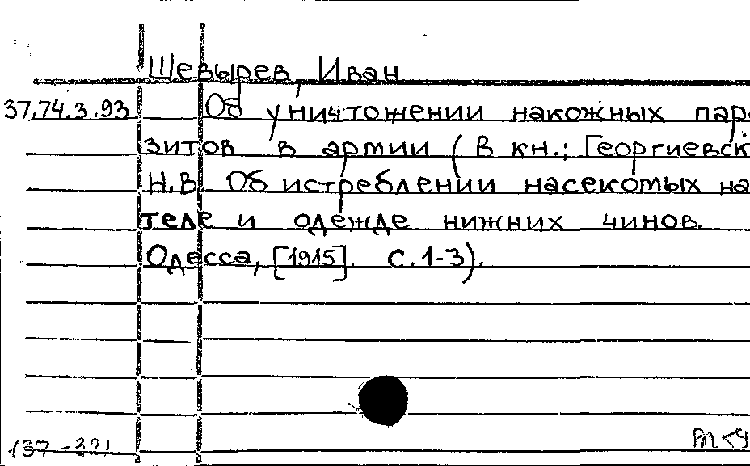 Шевырев, Иван
37.74.3.93 Об уничтожении накожных пара
зитов в армии (В кн.: Георгиевск
Н.В. Об истреблении насекомых на
теле и одежде нижних чинов.
Одесса, [1915]. С.1-3).
137-321